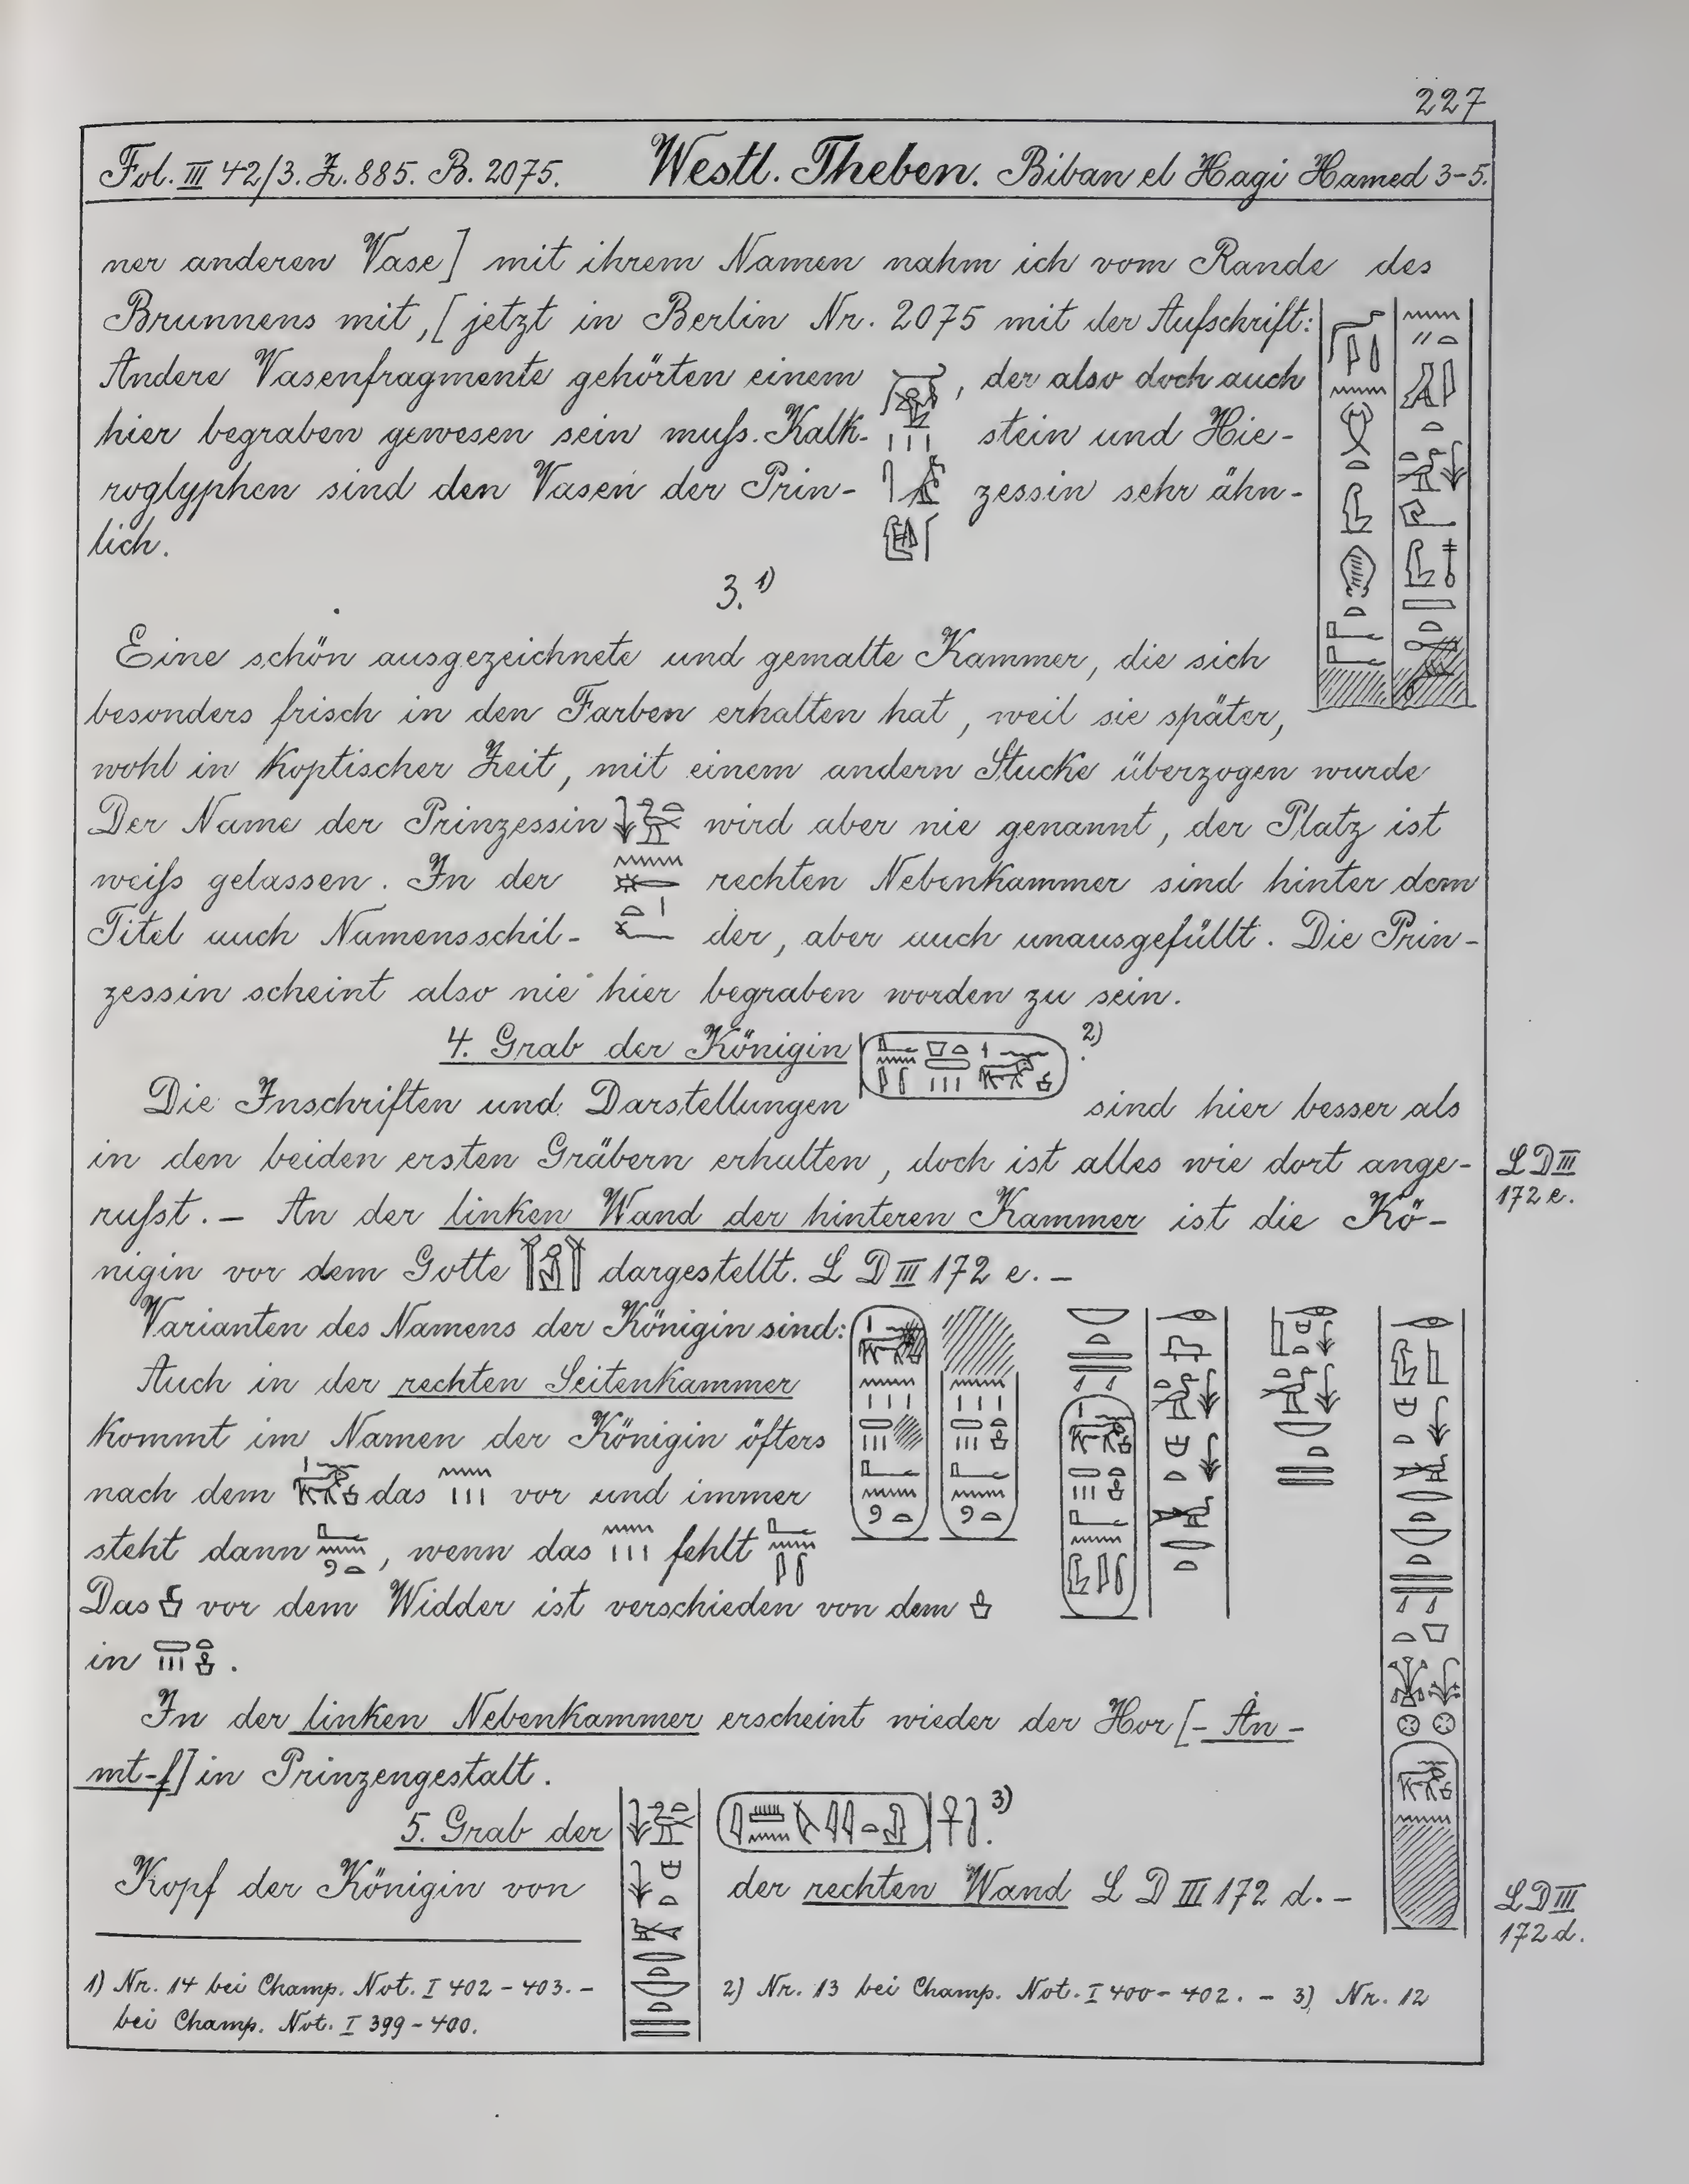 227
Fol. III 42/3. Z. 885. B. 2075. Westl. Theben. Biban el Hagi Hamed 3-5.
ner anderen Vase] mit ihrem Namen nahm ich vom Rande des
Brunnens mit, [jetzt in Berlin Nr. 2075 mit der Aufschrift:
Andere Vasenfragmente gehörten einem , der also doch auch
hier begraben gewesen sein muſs. Kalk- stein und Hie-
roglyphen sind den Vasen der Prin- zessin sehr ähn-
lich.
3. 1)
Eine schön ausgezeichnete und gemalte Kammer, die sich
besonders frisch in den Farben erhalten hat, weil sie später,
wohl in koptischer Zeit, mit einem andern Stucke überzogen wurde
Der Name der Prinzessin wird aber nie genannt, der Platz ist
weiſs gelassen. In der rechten Nebenkammer sind hinter dem
Titel auch Namensschil- der, aber auch unausgefüllt. Die Prin-
zessin scheint also nie hier begraben worden zu sein.
4. Grab der Königin 2)
Die Inschriften und Darstellungen sind hier besser als
in den beiden ersten Gräbern erhalten, doch ist alles wie dort ange-
ruſst. – An der linken Wand der hinteren Kammer ist die Kö-
nigin vor dem Gotte dargestellt. L D III 172 e. –
L D III
172 e.
Varianten des Namens der Königin sind:
Auch in der rechten Seitenkammer
kommt im Namen der Königin öfters
nach dem das vor und immer
steht dann , wenn das fehlt
Das vor dem Widder ist verschieden von dem
in .
In der linken Nebenkammer erscheint wieder der Hor [- Án-
mt-f] in Prinzengestalt.
5. Grab der 3)
Kopf der Königin von der rechten Wand L D III 172 d. –
L D III
172 d.
1) Nr. 14 bei Champ. Not. I 402 - 403. – 2) Nr. 13 bei Champ. Not. I 400 - 402. – 3) Nr. 12
bei Champ. Not. I 399 - 400.